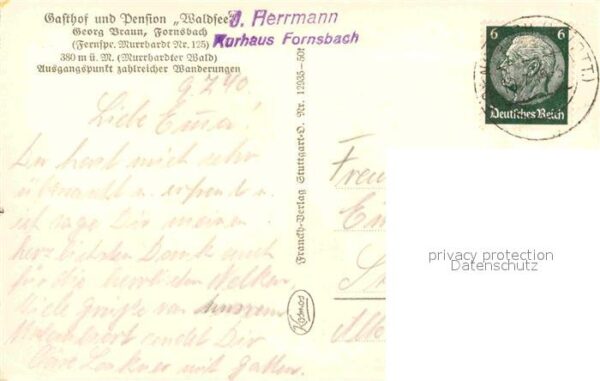 Gasthof und Pension „Waldsee"
Georg Braun, Fornsbach
(Fernspr. Murrhardt Nr. 125)
380 m ü. M. (Murrhardter Wald)
Ausgangspunkt zahlreicher Wanderungen
J. Herrmann
Kurhaus Fornsbach
9.7.40.
Liebe Emma!
Du hast mich sehr
überrascht u. erfreut u.
ich sage Dir meinen
herzlichsten Dank auch
für die herrlichen Nelken
Viele Grüße von unserem
sendet Dir
mit Gatten.
Franckh-Verlag Stuttgart-O. Nr. 12935-50t
Kosmos
6 6
Deutsches Reich
privacy protection
Datenschutz